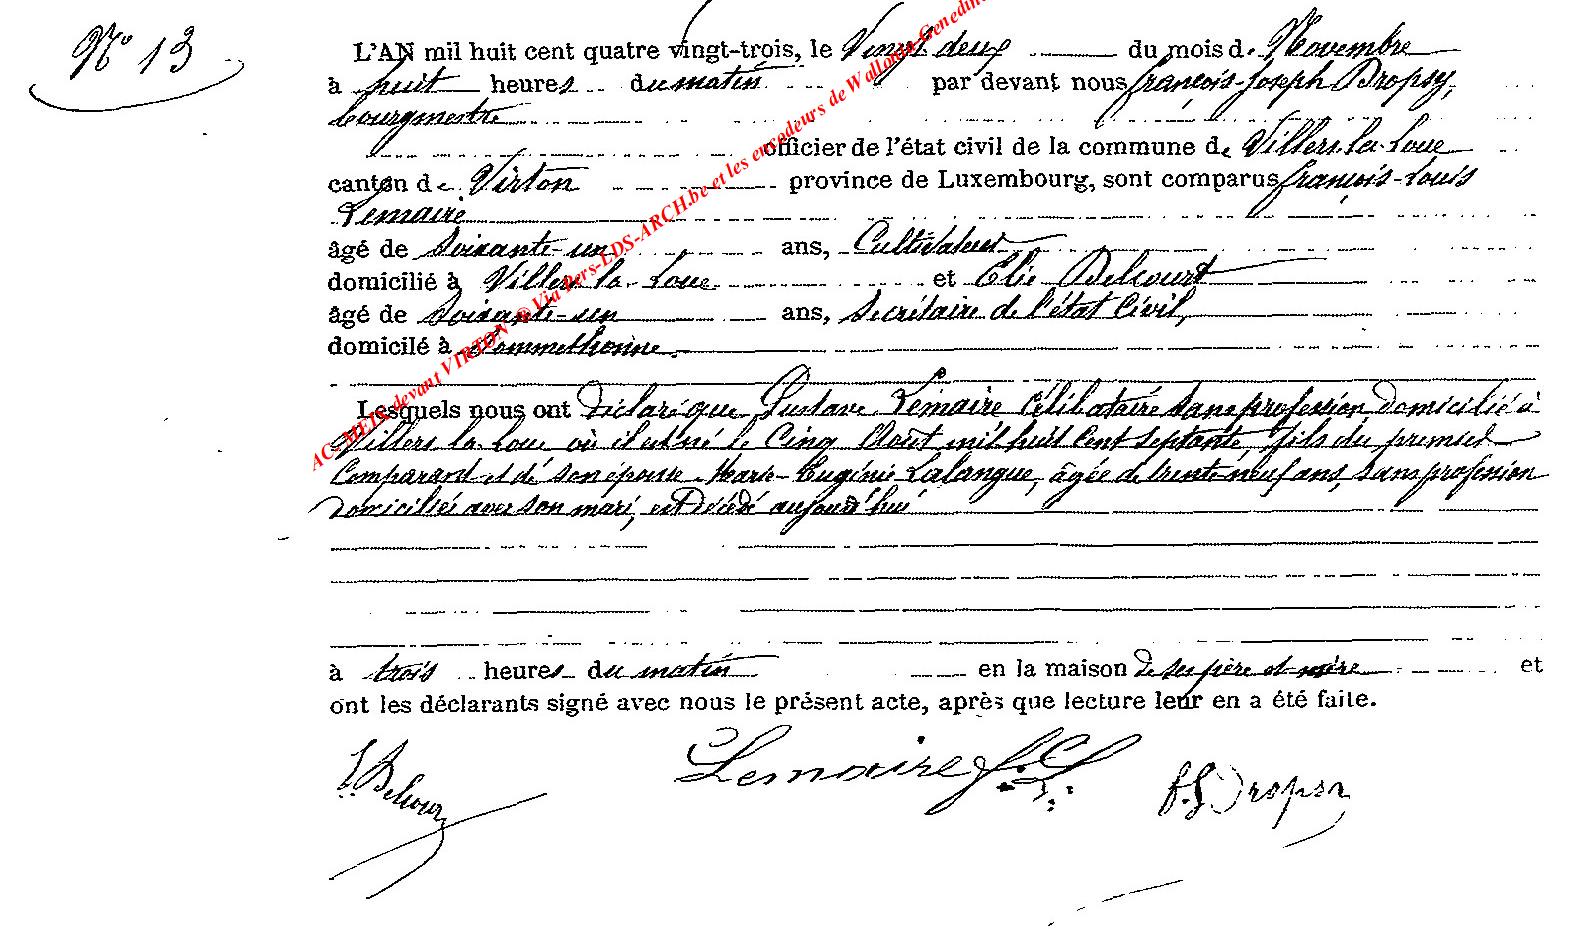 N° 13
L'AN mil huit cent quatre vingt-trois, le Vingt deux du mois de Novembre
à huit heures du matin par devant nous françois-Joseph Dropsy,
bourgmestre
officier de l'état civil de la commune de Villers-la-Loue
canton de Virton province de Luxembourg, sont comparus françois-Louis
Lemaire
âgé de Soixante-un ans, Cultivateur
domicilié à Villers-la-Loue et Elie Delcourt
âgé de Soixante-un ans, Secrétaire de l'état Civil,
domicilé à Sommethonne.
Lesquels nous ont déclaré que Gustave Lemaire Célibataire sans profession domicilié à
Villers-la-Loue où il est né le Cinq Août mil huit Cent septante, fils du premier
Comparant et de son épouse Marie-Eugénie Lalangue, âgée de trente-neuf ans, sans profession
domiciliée avec son mari, est décédé aujourd'hui
à trois heures du matin en la maison de ses père et mère et
ont les déclarants signé avec nous le présent acte, après que lecture leur en a été faite.
E. Delcour Lemaire f. L. f. J. Dropsy
AC MEIX devant VIRTON @ Via Pers-LDS-ARCH.be et les encodeurs de Wallonia-Genedine